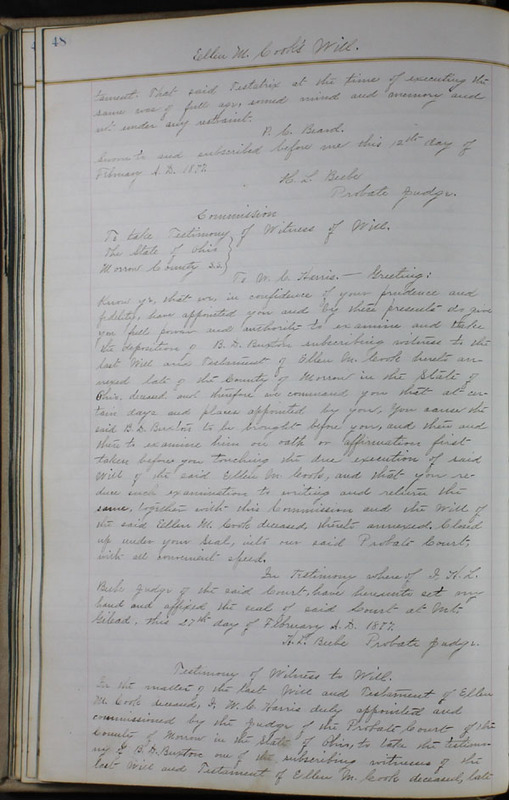 48
Ellen M. Cook's Will.
tament. That said Testatrix at the time of executing the
same was of full age, sound mind and memory and
not under any restraint.
P. C. Beard.
Sworn to and subscribed before me this 12th day of
February A.D. 1887.
H. L. Beebe
Probate Judge.
Commission
To take Testimony of Witness of Will.
The State of Ohio
Morrow County S.S.
To W. C. Harris. — Greeting:
Know ye, that we, in confidence of your prudence and
fidelity, have appointed you and by these presents do give
you full power and authority to examine and take
the deposition of B. D. Buxton subscribing witness to the
last Will and Testament of Ellen M. Cook hereto an-
nexed late of the County of Morrow in the State of
Ohio. deceased and therefore we command you that at cer-
tain days and places appointed by you, You cause the
said B. D. Buxton to be brought before you, and then and
there to examine him on oath or affirmation first
taken before you touching the due execution of said
Will of the said Ellen M. Cook, and that you re-
duce such examination to writing and return the
same, together with this Commission and the Will of
the said Ellen M. Cook deceased thereto annexed. Closed
up under your Seal, into our said Probate Court,
with all convenient speed.
In Testimony whereof I H. L.
Beebe Judge of the said Court, have hereunto set my
hand and affixed the seal of said Court at Mt.
Gilead, this 27th day of February A.D. 1887.
H. L. Beebe Probate Judge.
Testimony of Witness to Will.
In the matter of the last Will and Testament of Ellen
M. Cook deceased, I, W. C. Harris duly appointed and
commissioned by the Judge of the Probate Court of the
County of Morrow in the State of Ohio, to take the testimo-
ny of B. D. Buxton one of the subscribing witnesses of the
last Will and Testament of Ellen M. Cook deceased, late